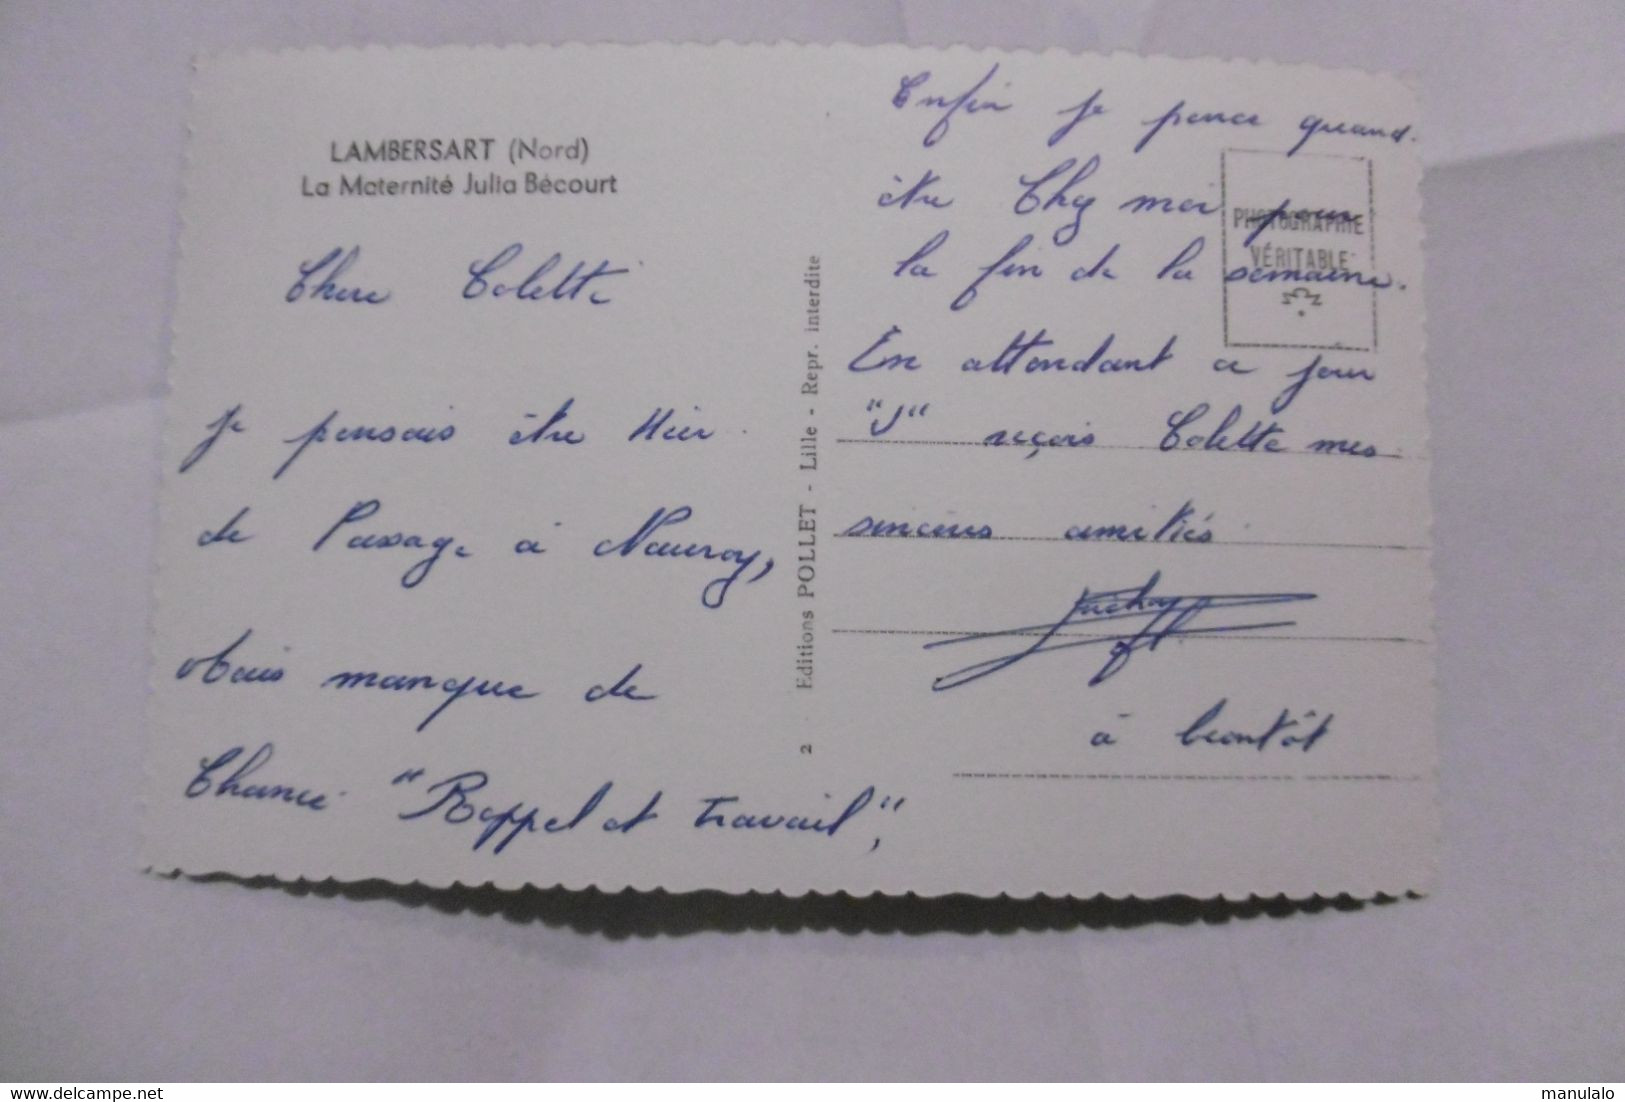 LAMBERSART (Nord)
La Maternité Julia Bécourt
Chere Colette
Je pensais être Hier
de Passage à Nauroy,
Mais manque de
Chance "Rappel et travail",
2 Editions POLLET - Lille - Repr. interdite
Enfin je pense quand.
être Chez moi pour
la fin de la semaine.
PHOTOGRAPHIE
VÉRITABLE
En attendant ce jour
"J" reçois Colette mes
sinceres amitiés
à bientôt
delcampe.net
manulalo